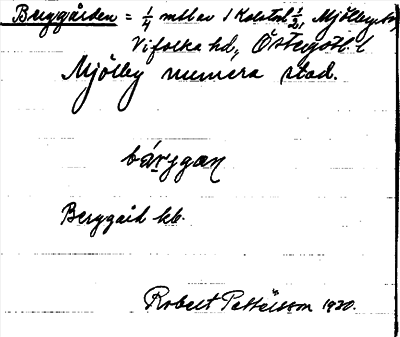 Berggården = 1/4 mtl av 1 Kolstad 1/2, Mjölby sn,
Vifolka hd, Östergötl. l
Mjölby numera stad.
bärggan
Berggård kb.
Robert Pettersson 1920.